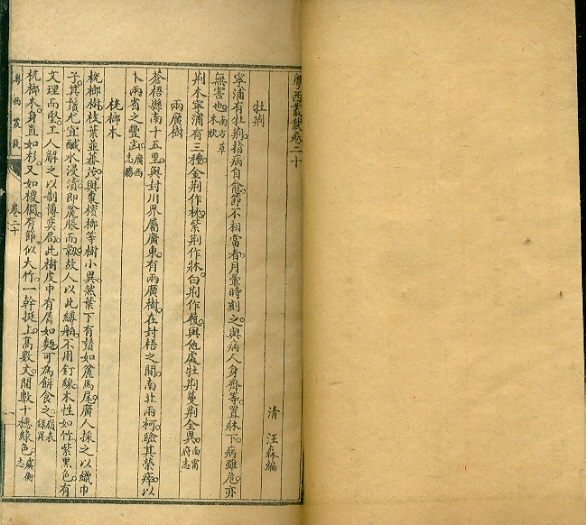 粵西叢載卷二十
清 汪森編
牡荆
寧浦有牡荆指病自愈節不相當者月暈時刻之與病人身齊等置牀下病雖危亦
無害也南方草木狀
荆木寧浦有三種金荆作枕紫荆作牀白荆作履與他處牡荆蔓荆全異南寧府志
兩廣樹
蒼梧縣南十五里與封川界屬廣東有兩廣樹在封梧之間南北兩柯驗其榮瘁以
卜兩省之豐凶廣西志勝
桄榔木
桄榔樹枝葉並蕃茂與棗檳榔等樹小異然葉下有鬚如麤馬尾廣人採之以織巾
子其鬚尤宜鹹水浸漬即麤脹而韌故人以此縛舶不用釘線木性如竹紫黑色有
文理而堅工人解之以制博奕局此樹皮中有屑如麪可為餅食之嶺表錄異
桄榔木身直如杉又如椶櫚有節似大竹一幹挺上高數丈開數十穗綠色虞衡志
粵西叢載 卷二十 一